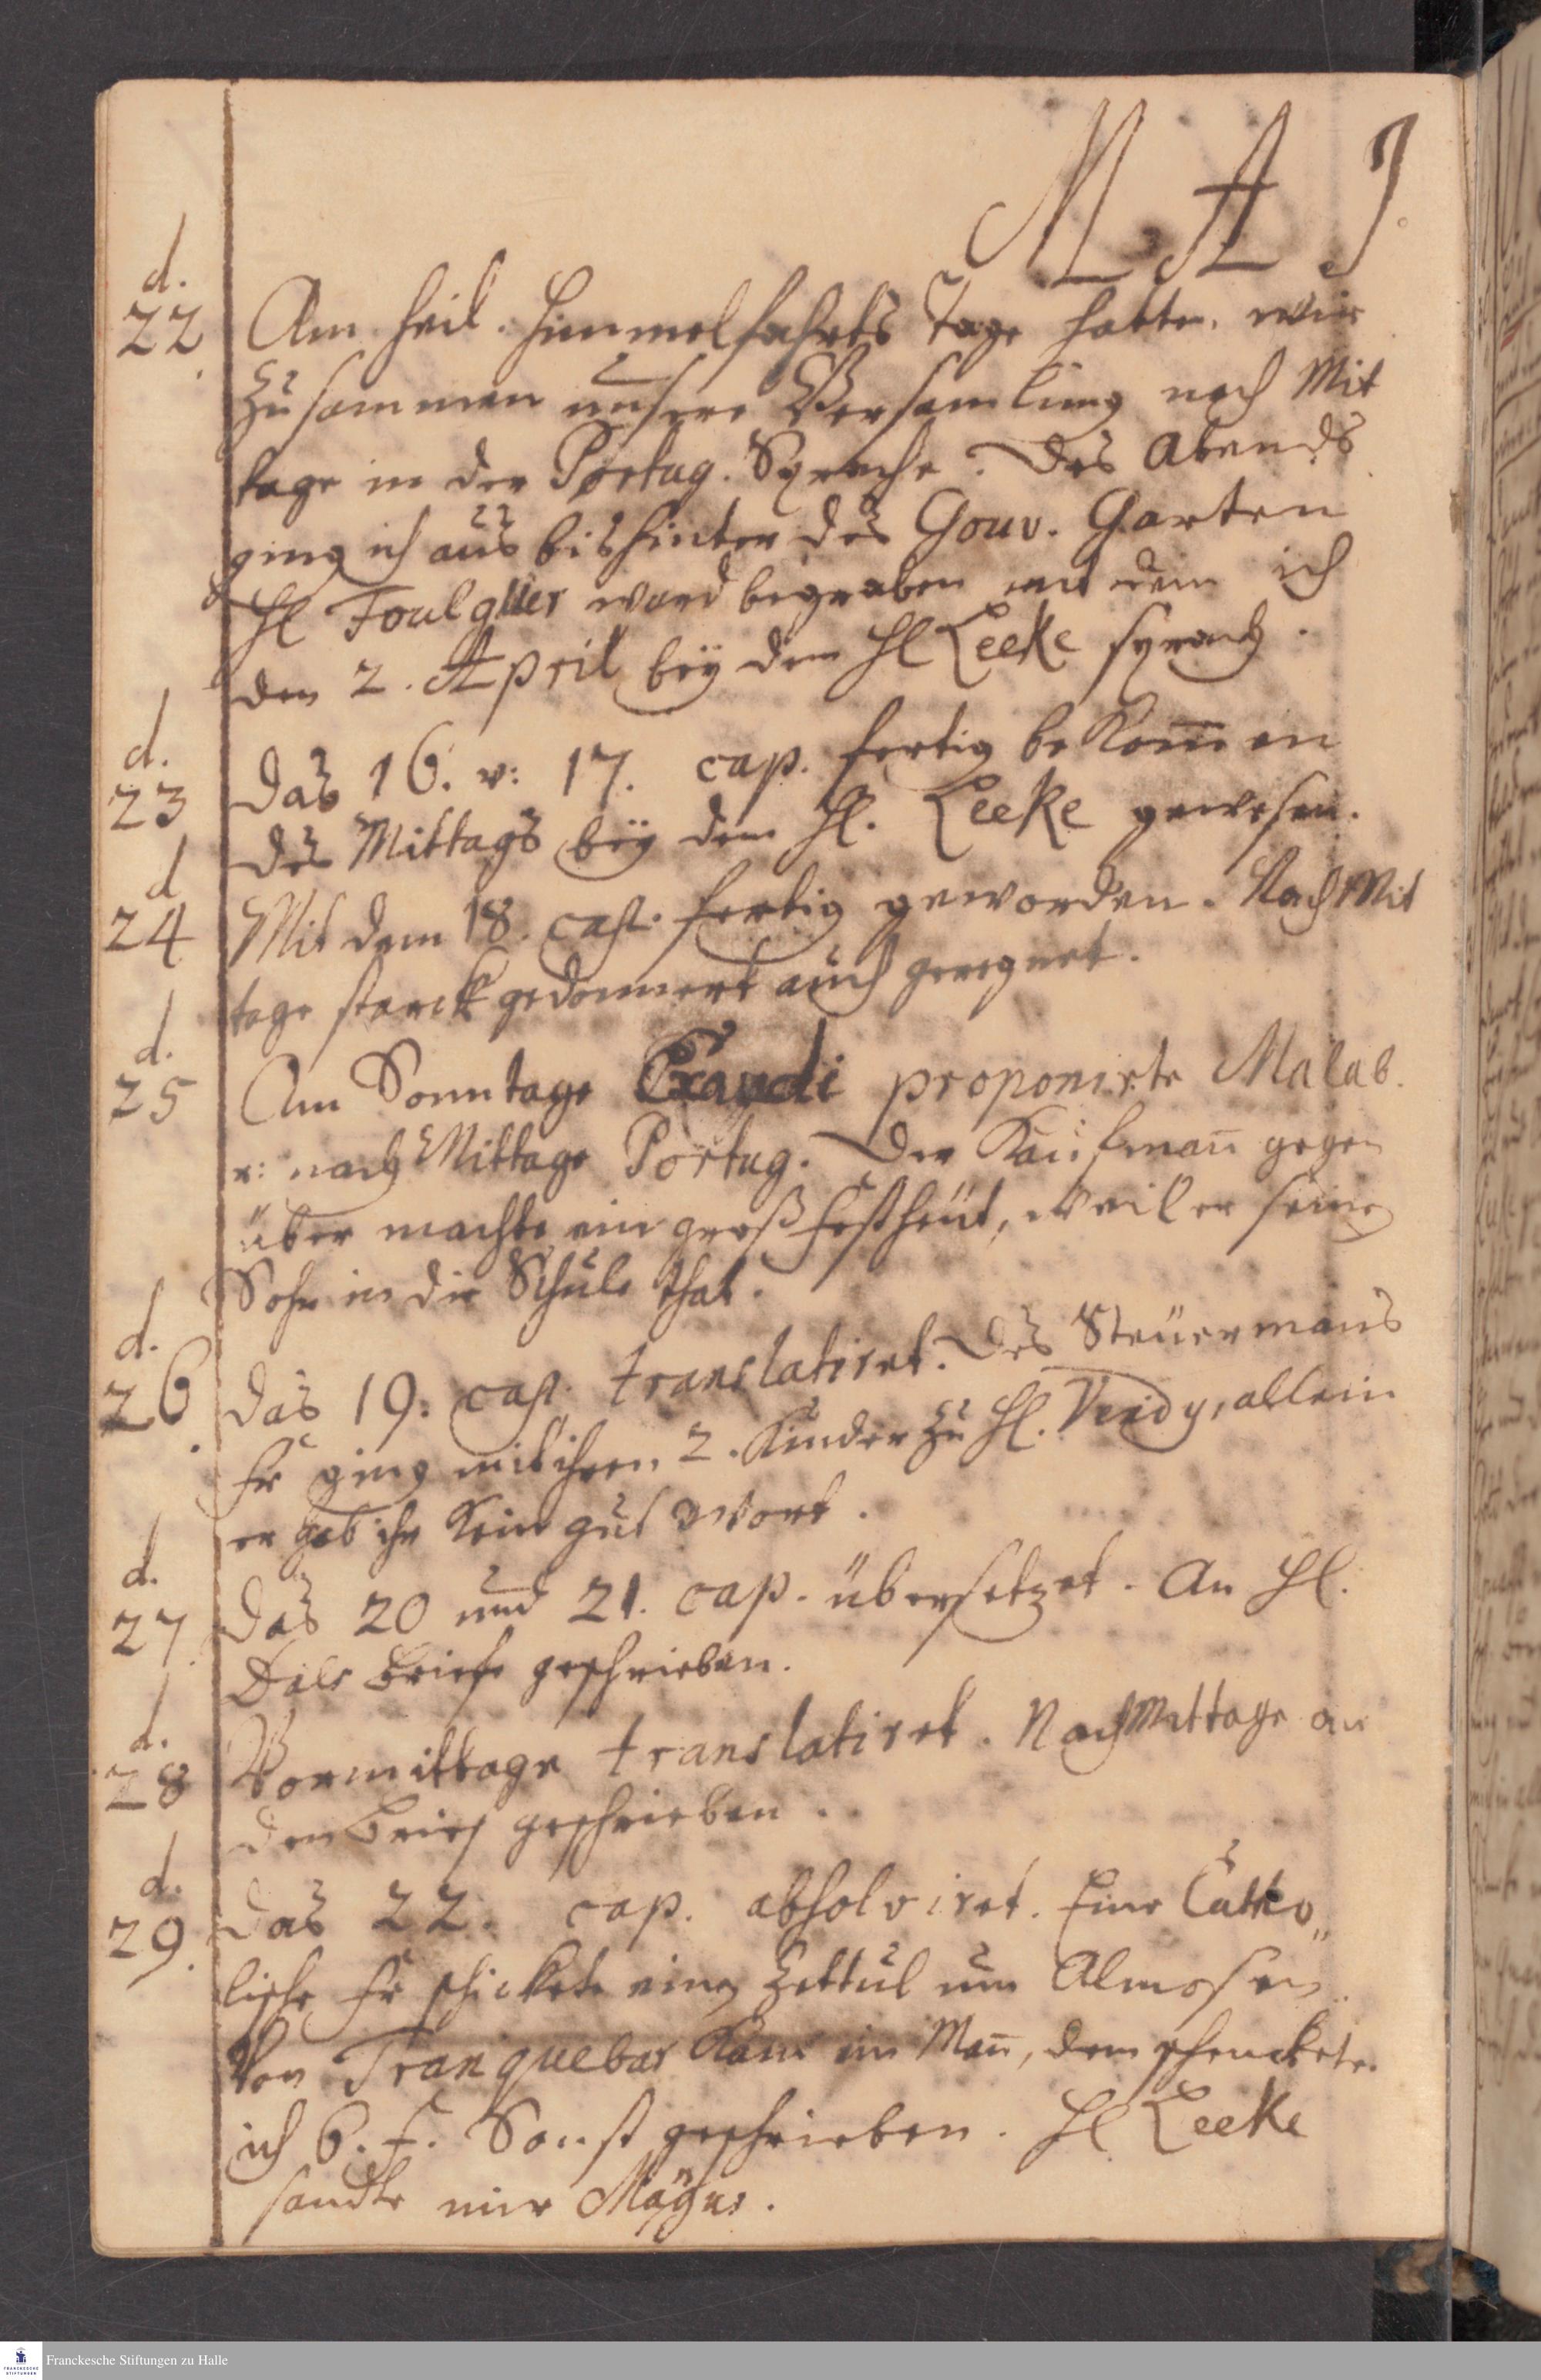 M A J.
d.
22 Am heil. Himmelfahrts Tage hatten wir
zusammen unsere Versamlung nach Mit
tage in der Portug. Sprache. Des Abends
ging ich aus bis hinter des Gouv. Garten
H Foulquier ward begraben mit dem ich
den 2. April beÿ dem H Leeke sprach.
d.
23 Das 16. v: 17. cap. fertig bekom̅en
des Mittags beÿ dem H. Leeke gewesen.
d
24 Mit dem 18. cap. fertig geworden. Nach Mit
tage starck gedonnert auch geregnet.
d.
25 Am Sonntage Exaudi proponirte Malab.
v: nach Mittage Portug. Der Kaufman̅ gegen
über machte ein groß fest heut, weil er seinen
Sohn in die Schule that.
d.
26 Das 19. cap. translatiret. Des Steüermans
Fr ging mit ihren 2. Kinder zu H. Veidy, allein
er gab ihr kein gut Wort.
d.
27 Das 20 und 21. cap. übersetzet. An H.
Dals Briefe geschrieben.
d.
28 Vormittage translatiret. Nach Mittage an
den Brief geschrieben.
d.
29. Das 22. cap. absolviret. Eine Catho„
lische Fr schickete einen Zettul um Almosen.
Von Tranquebar kam ein Man̅, dem schenckete
ich 6. f. Sonst geschrieben. H Leeke
sandte mir
Franckesche Stiftungen zu Halle